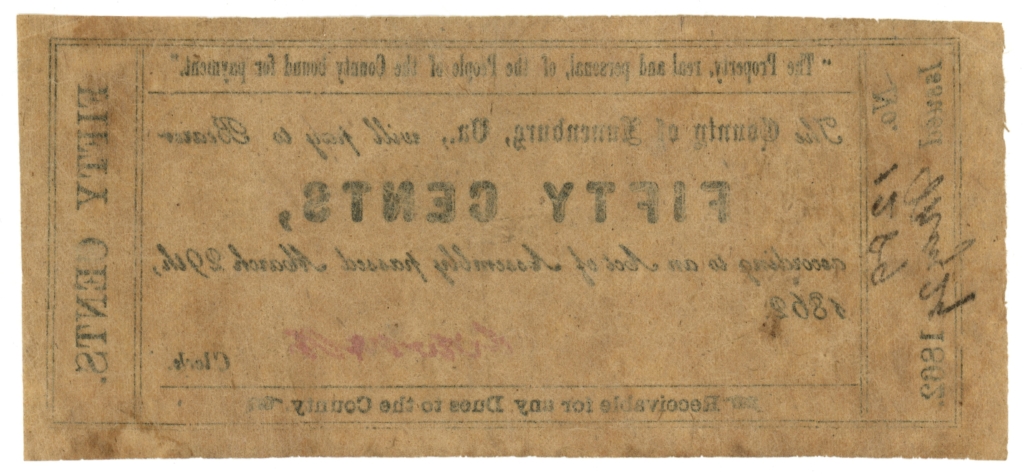 "The Property, real and personal, of the People of the County bound for payment."
The County of Lunenburg, Va., will pay to Bearer
FIFTY CENTS,
according to an Act of Assembly passed March 29th,
1862
Clerk.
Receivable for any Dues to the County
FIFTY CENTS.
No.
Issued 1862.